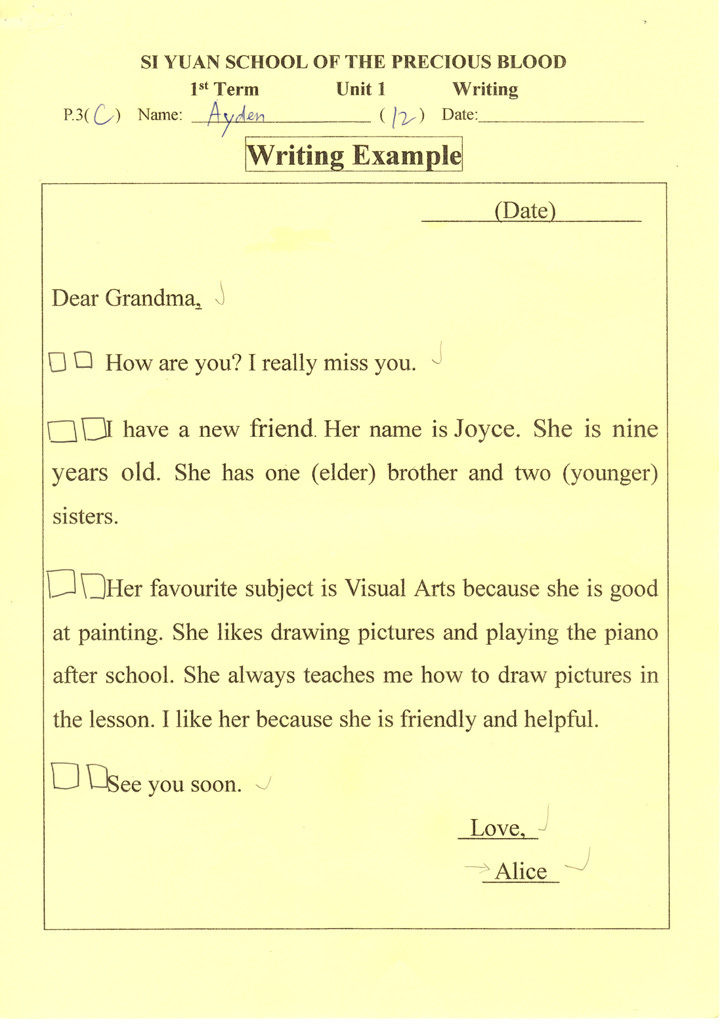 SI YUAN SCHOOL OF THE PRECIOUS BLOOD
1st Term Unit 1 Writing
P.3( C ) Name: Ayden ( 12 ) Date:
Writing Example
(Date)
Dear Grandma,
How are you? I really miss you.
I have a new friend. Her name is Joyce. She is nine
years old. She has one (elder) brother and two (younger)
sisters.
Her favourite subject is Visual Arts because she is good
at painting. She likes drawing pictures and playing the piano
after school. She always teaches me how to draw pictures in
the lesson. I like her because she is friendly and helpful.
See you soon.
Love,
Alice